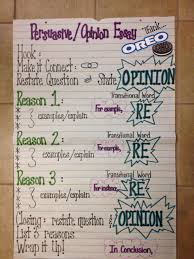 Persuasive/Opinion Essay
Think
OREO
Hook:
Make it Connect:
Restate Question State OPINION
Reason 1
Transitional Word
For example,
examples/explain
RE
Reason 2
Transitional Word
For example,
examples/explain
RE
Reason 3
Transitional Word
For instance,
examples/explain
RE
Closing: restate question OPINION
List 3 reasons
Wrap it Up!
In Conclusion,